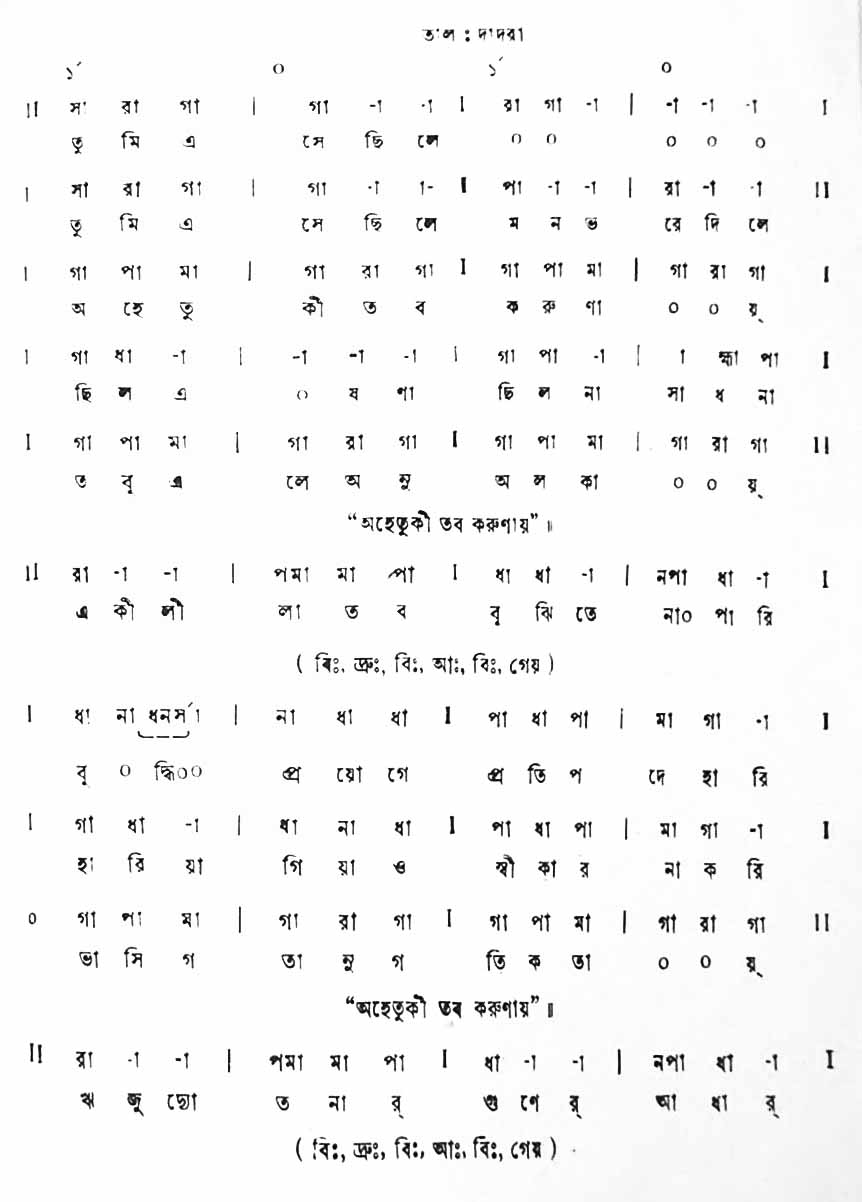 তাল : দাদরা
১´ ০ ১´ ০
II সা রা গা | গা -া -া I রা গা -া | -া -া -া I
তু মি এ সে ছি লে ০ ০ ০ ০ ০
I সা রা গা | গা -া া- I পা -া -া | রা -া -া II
তু মি এ সে ছি লে ম ন ভ রে দি লে
I গা পা মা | গা রা গা I গা পা মা | গা রা গা I
অ হে তু কী ত ব ক রু ণা ০ ০ য়্
I গা ধা -া | -া -া -া I গা পা -া | া হ্মা পা I
ছি ল এ ০ ষ ণা ছি ল না সা ধ না
I গা পা মা | গা রা গা I গা পা মা | গা রা গা II
ত বু এ লে অ নু অ ল কা ০ ০ য়্
“অহেতুকী তব করুণায়”॥
II রা -া -া | পমা মা পা I ধা ধা -া | নপা ধা -া I
এ কী লী লা ত ব বু ঝি তে না০ পা রি
( বিঃ, দ্রুঃ, বিঃ, আঃ, বিঃ, গেয় )
I ধা না ধনর্সা | না ধা ধা I পা ধা পা | মা গা -া I
বু ০ দ্ধি০০ প্র য়ো গে প্র তি প দে হা রি
I গা ধা -া | ধা না ধা I পা ধা পা | মা গা -া I
হা রি য়া গি য়া ও স্বী কা র না ক রি
০ গা পা মা | গা রা গা I গা পা মা | গা রা গা II
ভা সি গ তা নু গ তি ক তা ০ ০ য়্
“অহেতুকী তব করুণায়”॥
II রা -া -া | পমা মা পা I ধা -া -া | নপা ধা -া I
ঋ জু দ্যো ত না র্ গু ণে র্ আ ধা র্
( বিঃ, দ্রুঃ, বিঃ, আঃ, বিঃ, গেয় )